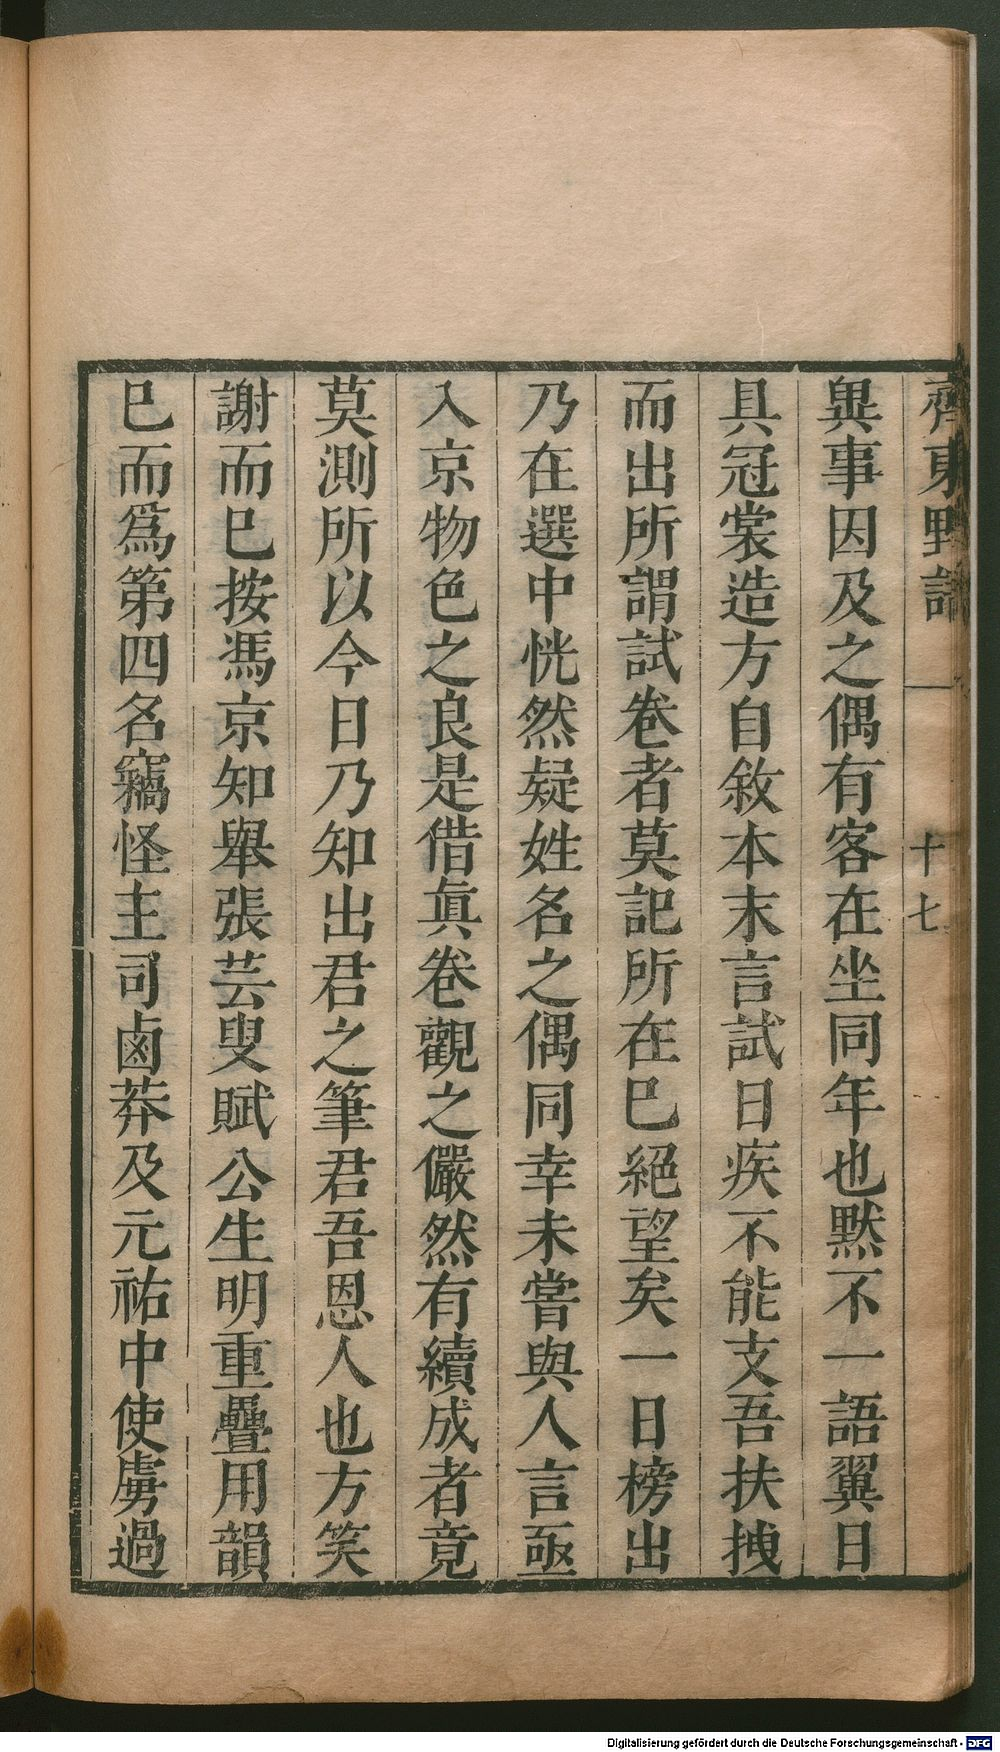 齊東野語
十七
異事因及之偶有客在坐同年也黙不一語翼日
具冠裳造方自敘本末言試日疾不能支吾扶拽
而出所謂試卷者莫記所在巳絕望矣一日榜出
乃在選中恍然疑姓名之偶同幸未嘗與人言亟
入京物色之良是借眞卷觀之儼然有續成者竟
莫測所以今日乃知出君之筆君吾恩人也方笑
謝而巳按馮京知舉張芸叟賦公生明重疊用韻
巳而爲第四名竊怪主司鹵莽及元祐中使虜過
Digitalisierung gefördert durch die Deutsche Forschungsgemeinschaft - DFG